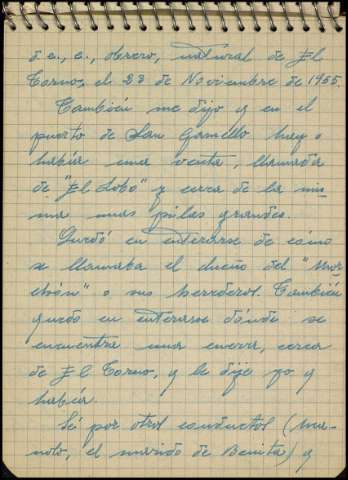 d. e., e., obrero, natural de El
Torno, el 23 de Noviembre de 1955.
También me dijo q en el
puerto de San Gamello hay o
había una venta, llamada
de "El Lobo" y cerca de la mis
ma unas pilas grandes.
Quedó en enterarse de cómo
se llamaba el dueño del "
" o sus herederos. También
quedó en enterarse dónde se
encuentra una cueva, cerca
de El Torno, q le dije yo q
había.
Sé por otros conductos (Ma-
nolo, el marido de Benita) q